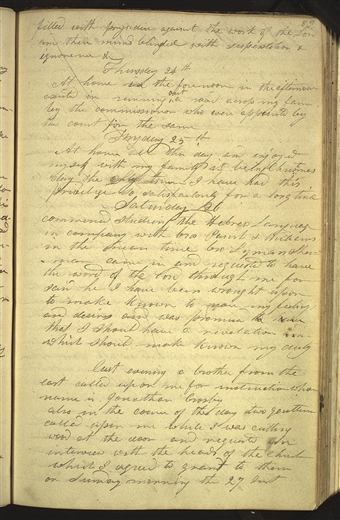 89
filled with prejudice against the work of the Lord
their minds blinded with superstition &
ignorance &c
Thursday 24th
At home in the forenoon in the afternoon
assisted in running out a road across my farm
by the commissioner who were appointed by
the court for the same
Fryday 25th
At home all this day and injoyed
myself with my family it being Christmas
day the only time I have had this
privilege so satisfactorily for a long time
Saturday 26
commenced studeing the Hebrew Language
in company with bro Parish & Williams
in the mean time bro Lyman Sher-
man came in and requested to have
the word of the Lord through me for
said he I have been wrought upon
to make known to you my feelings
and desires and was promised to have
that I should have a revelation
which should make known my duty
last evening a brother from the
east called upon me for instruction whose
name is Jonathan Crosby
also in the course of the day two gentlemen
called upon me while I was cutting
wood at the door and requested an
interview with the heads of the Church
which I agreed to grant to them
on Sunday morning the 27 Inst